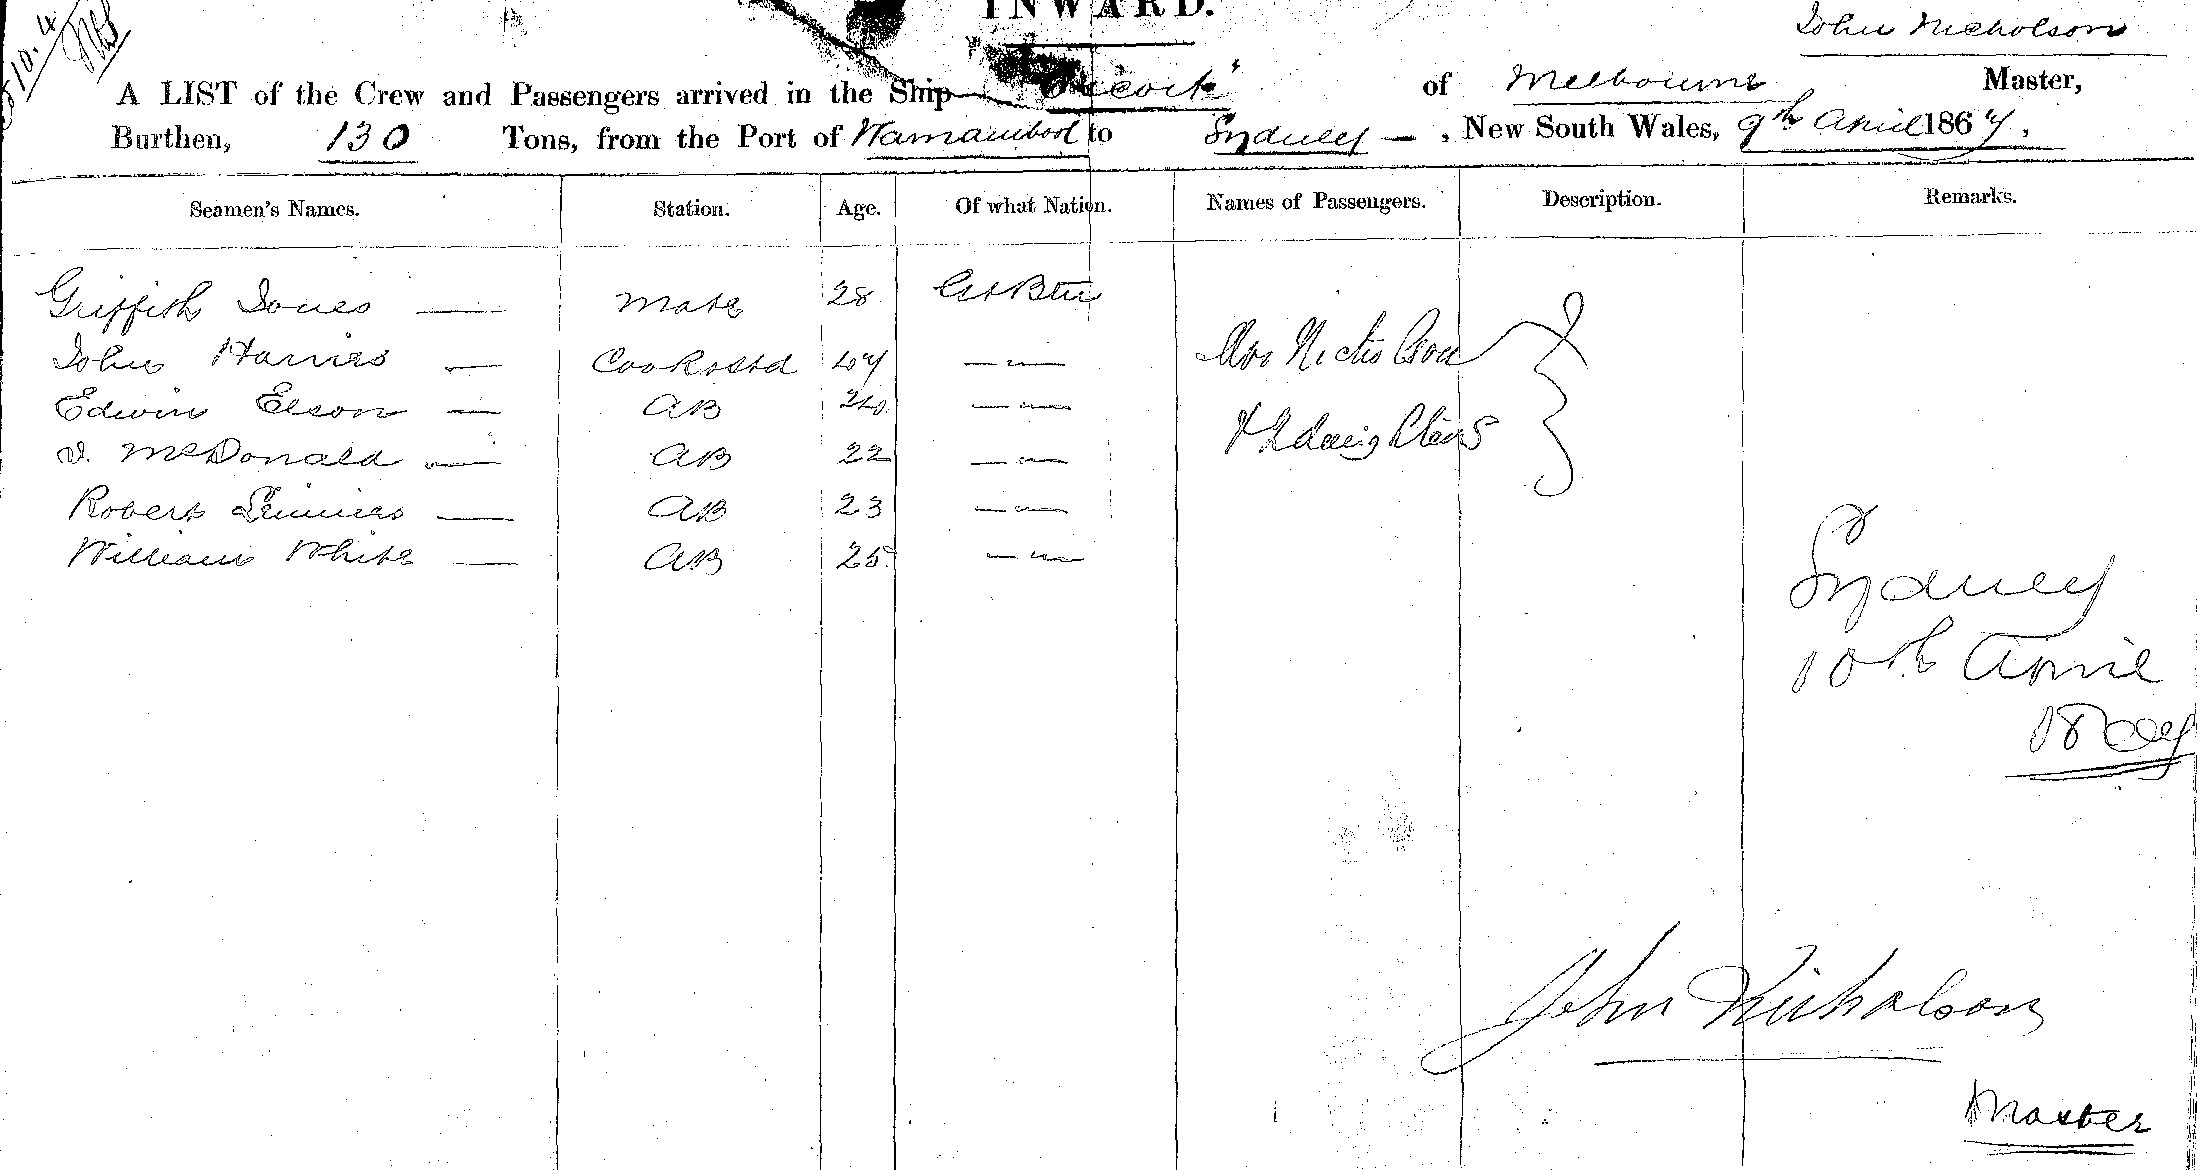 10.4
INWARD.
John Nicholson
A LIST of the Crew and Passengers arrived in the Ship of Melbourne Master,
Burthen, 130 Tons, from the Port of Warnambool to Sydney — , New South Wales, 9th April 1867,
Seamen's Names. Station. Age. Of what Nation. Names of Passengers. Description. Remarks.
Griffith Jones — Mate 28 Gt Btn
John Harries — Cook & Std 47 — " —
Mrs Nicholson
Edwin Elson — AB — " —
& 2 daughters
J. McDonald — AB 22 — " —
Robert — AB 23 — " —
William White — AB 25 — " —
Sydney
10th April
1867
John Nicholson
Master